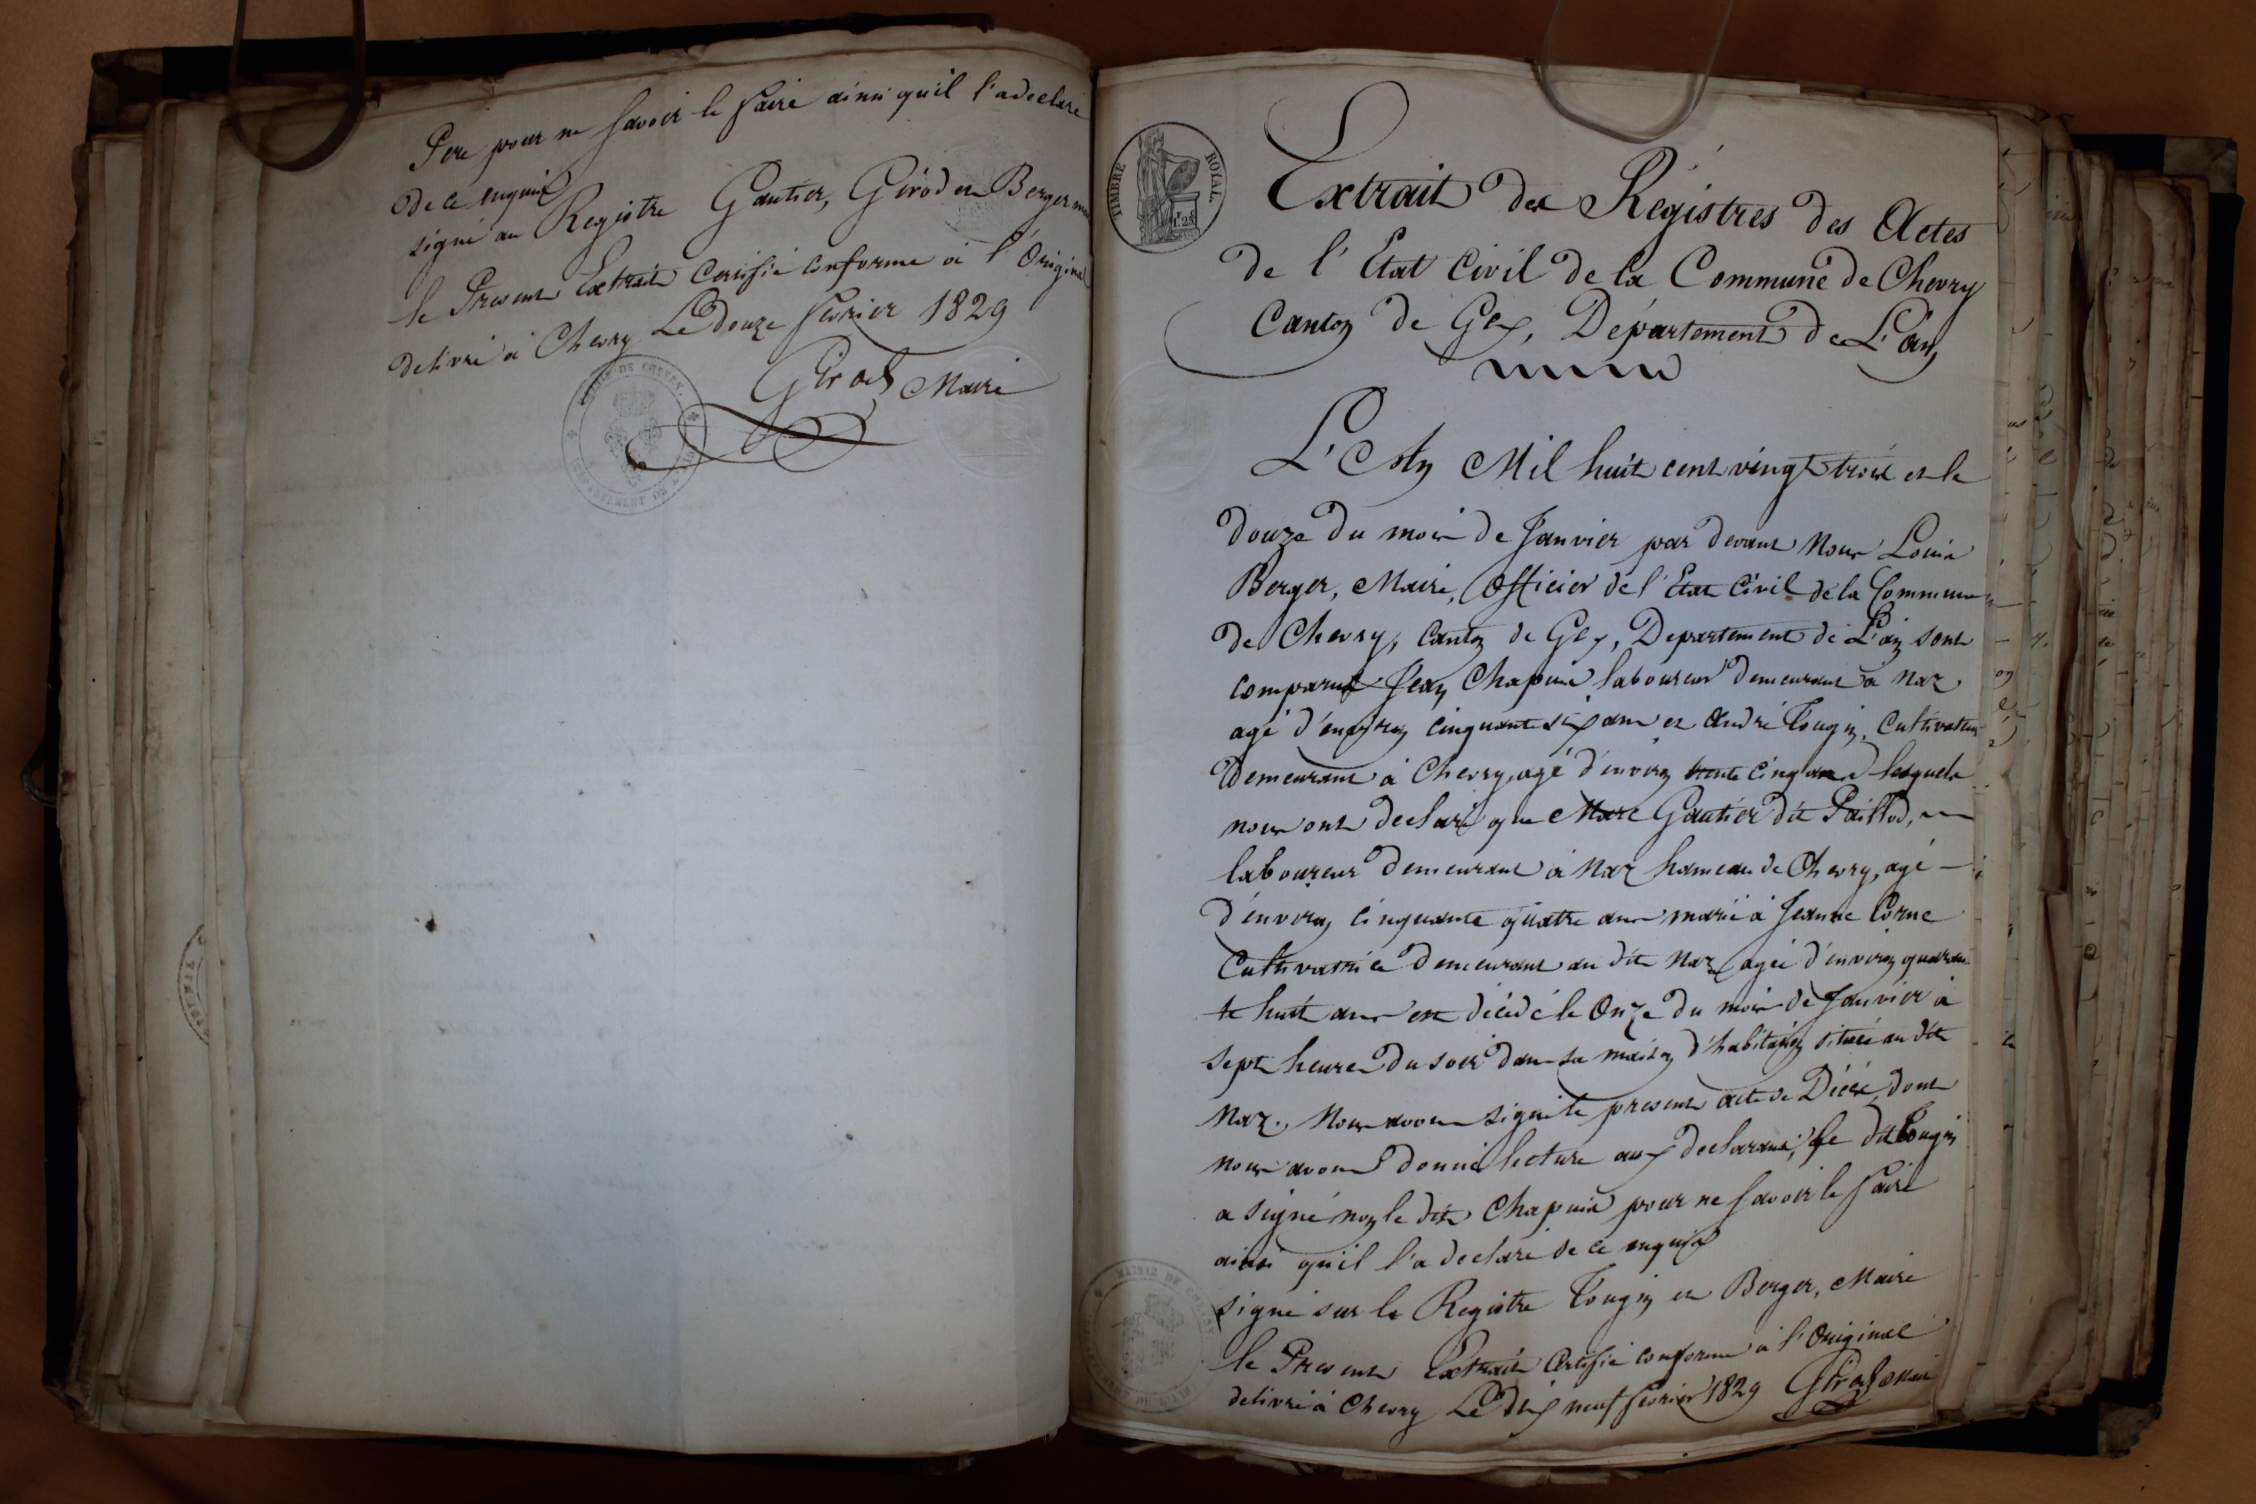 Pere pour ne savoir le faire ainsi qu'il l'a declaré
de ce enquis
signé au Registre Gautier, Girod et Berger
le Present Extrait Certifié conforme à l'Original
delivré à Chevry Le douze fevrier 1829
Girod Maire
MAIRIE DE CHEVRY
DEPARTEMENT DE L'AIN
TIMBRE ROYAL
Extrait des Régistres des Actes
de l'Etat Civil de la Commune de Chevry
Canton de Gex, Département de L'ain
L'An Mil huit cent vingt trois et le
douze du mois de Janvier par devant Nous Louis
Berger, Maire, Officier de l'Etat Civil de la Commune
de Chevry, Canton de Gex, Departement de L'ain sont
comparus Jean Chapuis laboureur demeurant à Naz
agé d'environ cinquante six ans et André Tougin, Cultivateur
demeurant à Chevry, agé d'environ trente cinq ans lesquels
nous ont declaré que Marc Gautier dit Paillod,
laboureur demeurant à Naz hameau de Chevry, agé
d'environ cinquante quatre ans marié à Jeanne Corne
Cultivatrice demeurant au dit Naz agée d'environ quaran
te huit ans est décédé le Onze du mois de Janvier à
sept heures du soir dans sa maison d'habitation située au dit
Naz. Nous avons signé le present acte de Décès, dont
nous avons donné lecture aux declarans, le dit Tougin
a signé non le dit Chapuis pour ne savoir le faire
ainsi qu'il l'a declaré de ce enquis
signé sur le Registre Tougin et Berger, Maire
le Present Extrait Certifié conforme à l'Original
delivré à Chevry Le dix neuf fevrier 1829 Girod Maire
MAIRIE DE CHEVRY